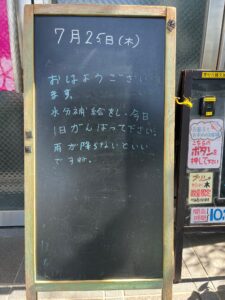 7月25日(木)
おはようござい
ます。
水分補給をし、今日
1日がんばって下さい。
雨が降らないといい
ですね。
こちらの
ボタンを
押して下さい